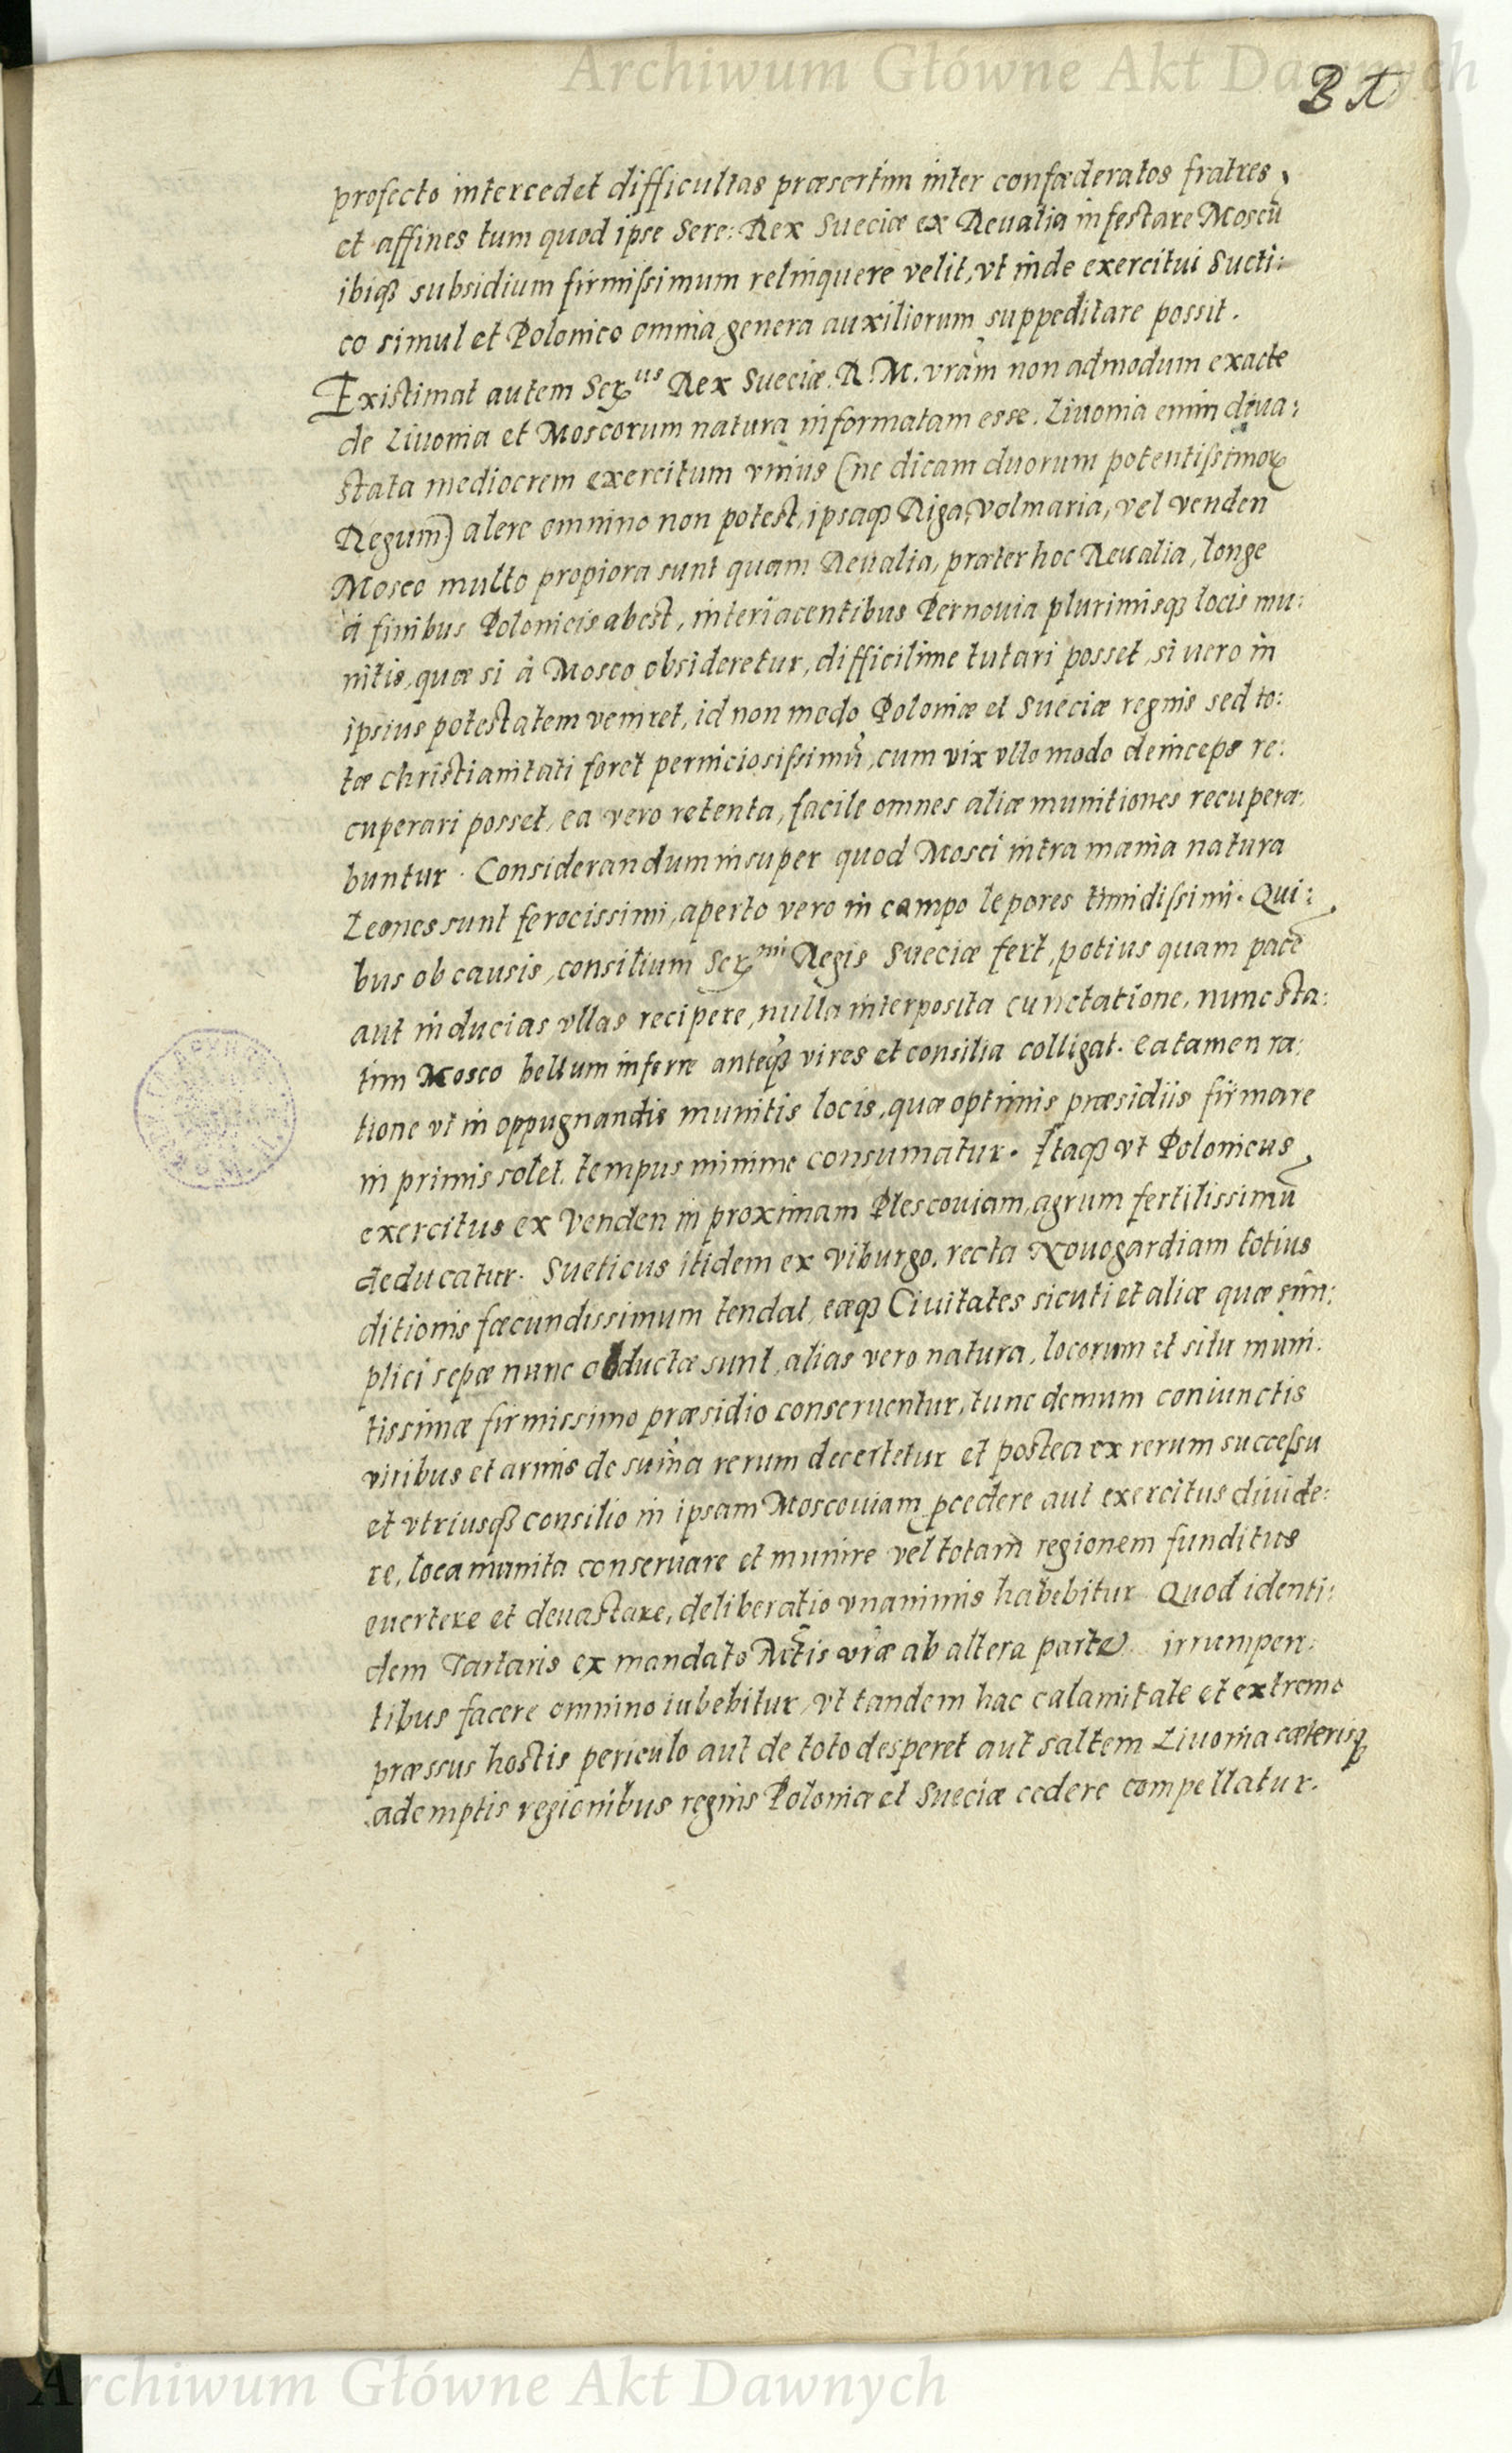 Archiwum Główne Akt Dawnych
profecto intercedet difficultas præsertim inter confœderatos fratres,
et affines tum quod ipse Sere: Rex Sueciæ ex Reualia infestare Moscũ
ibiqȝ subsidium firmiſsimum relinquere velit, vt inde exercitui Sueti:
co simul et Polonico omnia genera auxiliorum suppeditare possit.
Existimat autem Serᵘˢ Rex Sueciæ. R. M. vrãm non admodum exacte
de Liuonia et Moscorum natura informatam esse. Liuonia enim deua:
stata mediocrem exercitum vnius (ne dicam duorum potentiſsimoꝝ
Regum) alere omnino non potest, ipsaqȝ Riga, Volmaria, vel venden
Mosco multo propiora sunt quam Reualia, præter hoc Reualia, longe
à finibus Polonicis abest, interiacentibus Pernouia plurimisqȝ locis mu:
nitis, quæ si à Mosco obsideretur, difficilime tutari posset, si uero in
ipsius potestatem veniret, id non modo Poloniæ et Sueciæ regnis sed to:
tæ christianitati foret perniciosiſsimũ, cum vix vllo modo deinceps re:
cuperari posset, ea vero retenta, facile omnes aliæ munitiones recupera:
buntur. Considerandum insuper quod Mosci intra mænia natura
Leones sunt ferocissimi, aperto vero in campo lepores timidiſsimi. Qui:
bus ob causis, consilium Serᵐⁱ Regis Sueciæ fert, potius quam pacẽ
aut inducias vllas recipere, nulla interposita cunctatione, nunc sta:
tim Mosco bellum inferre anteqȝ vires et consilia colligat. Ea tamen ra:
tione vt in oppugnandis munitis locis, quæ optimis præsidiis firmare
in primis solet, tempus minime consumatur. Itaqȝ vt Polonicus
exercitus ex Venden in proximam Plescouiam, agrum fertilissimũ
deducatur. Sueticus itidem ex Viburgo, recta Nouogardiam totius
ditionis fœcundissimum tendat, eæqȝ Ciuitates sicuti et aliæ quæ sim:
plici sepæ nunc obductæ sunt, alias vero natura, locorum et situ muni:
tissimæ firmissimo præsidio conseruentur, tunc demum coniunctis
viribus et armis de sum̃a rerum decertetur et postea ex rerum succeſsu
et vtriusqȝ consilio in ipsam Moscouiam ꝓcedere aut exercitus diuide:
re, loca munita conseruare et munire vel totam regionem funditus
euertere et deuastare, deliberatio vnanimis habebitur. Quod identi:
dem Tartaris ex mandato Mtis vræ ab altera parte irrumpen:
tibus facere omnino iubebitur, vt tandem hac calamitate et extremo
præssus hostis periculo aut de toto desperet aut saltem Liuonia cæterisqȝ
ademptis regionibus regnis Poloniæ et Sueciæ cedere compellatur.
Archiwum Główne Akt Dawnych